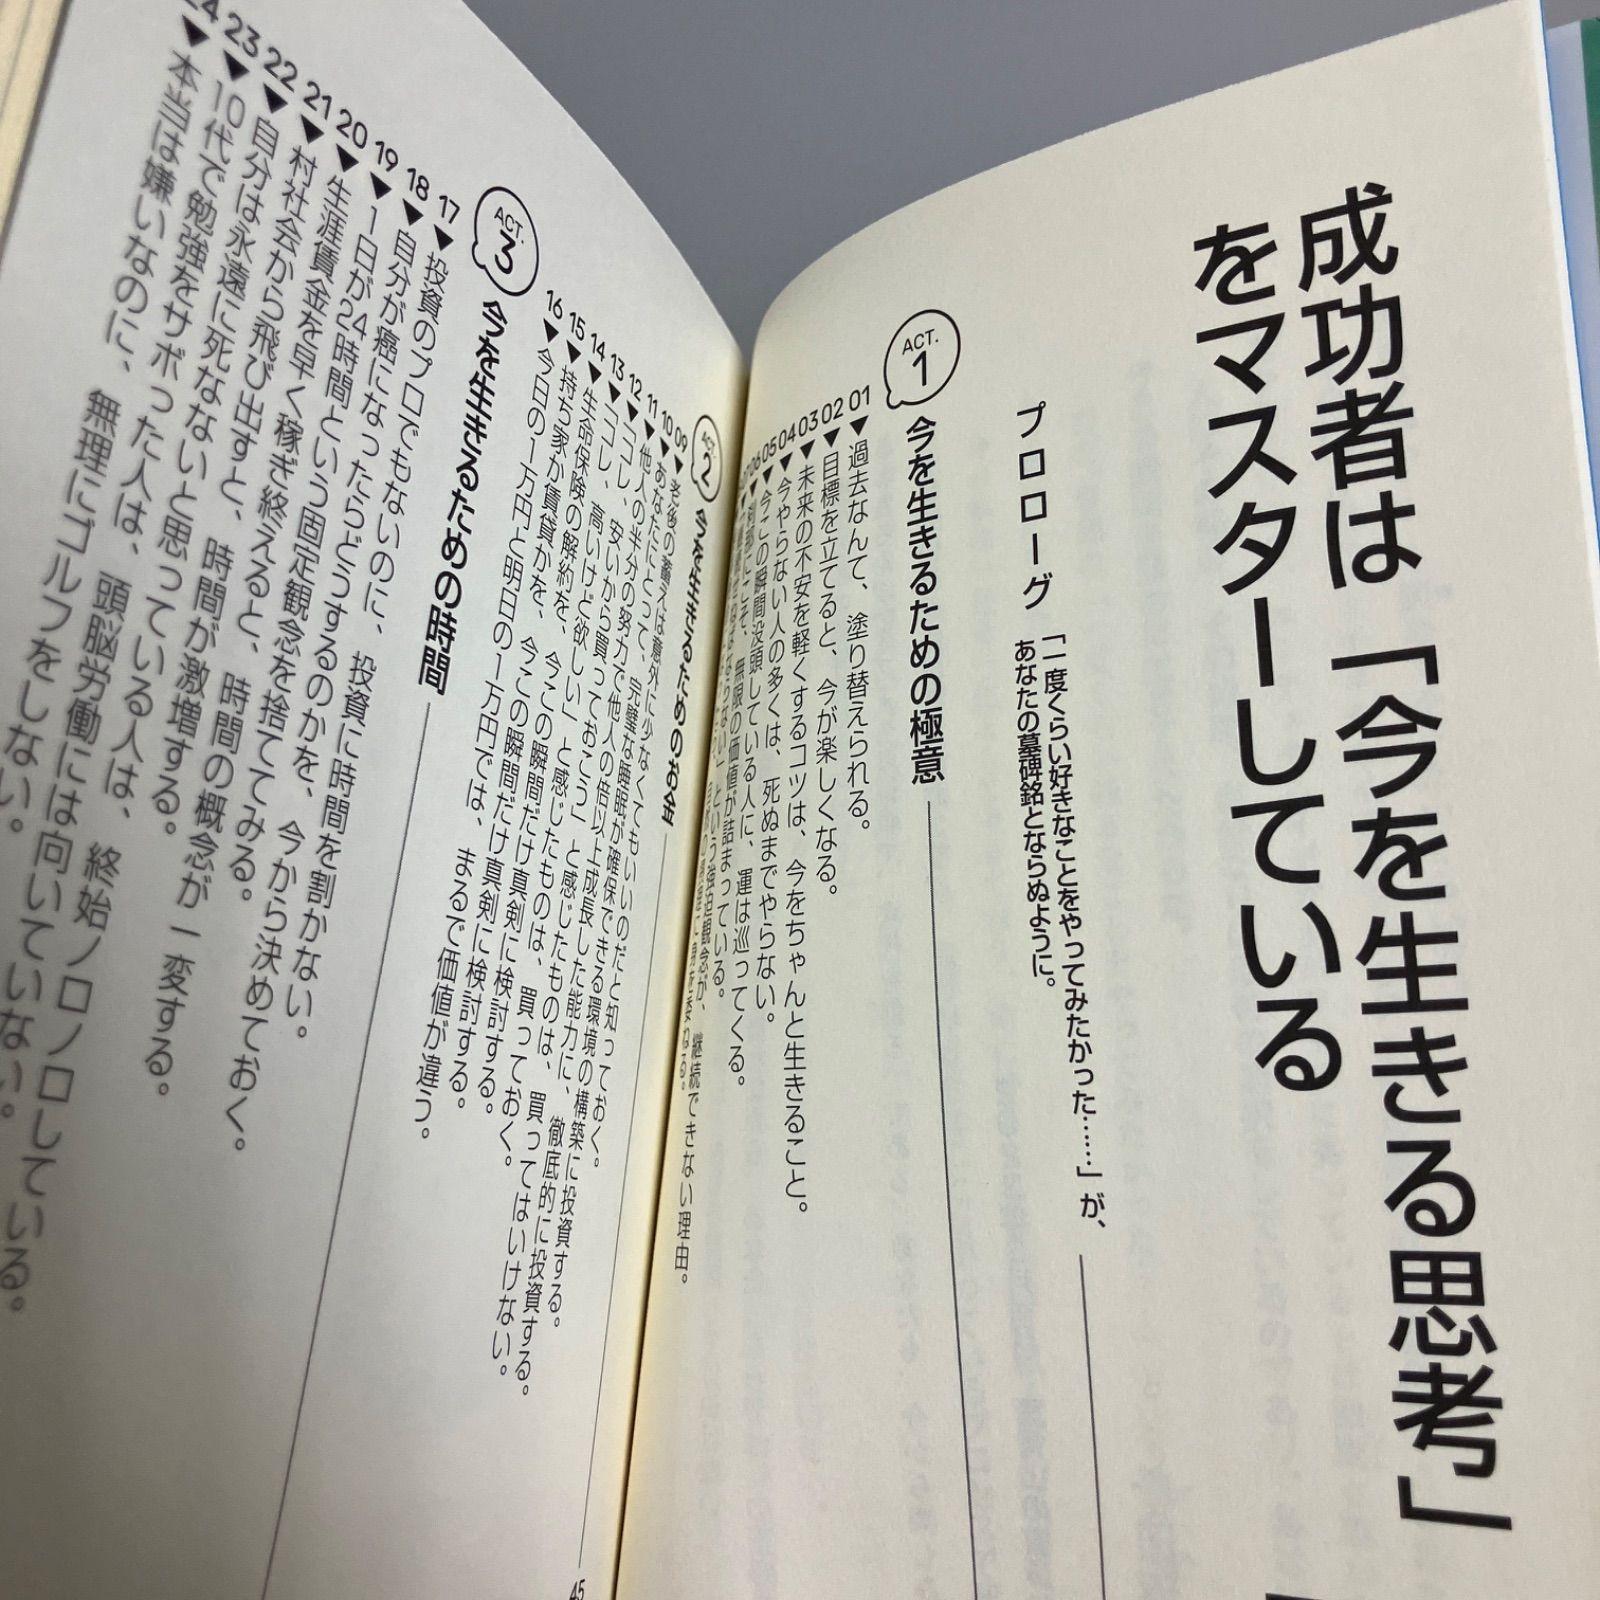 成功者は「今を生きる思考」
をマスターしている
プロローグ
「一度くらい好きなことをやってみたかった……」が、
あなたの墓碑銘とならぬように。
ACT. 1 今を生きるための極意
01▼過去なんて、塗り替えられる。
02▼目標を立てると、今が楽しくなる。
03▼未来の不安を軽くするコツは、今をちゃんと生きること。
04▼今やらない人の多くは、死ぬまでやらない。
05▼今この瞬間没頭している人に、運は巡ってくる。
06▼刹那にこそ、無限の価値が詰まっている。
という強迫観念が、継続できない理由。
ACT. 2 今を生きるためのお金
09▼老後の蓄えは意外に少なくてもいいのだと知っておく。
10▼あなたにとって、完璧な睡眠が確保できる環境の構築に投資する。
11▼他人の半分の努力で他人の倍以上成長した能力に、徹底的に投資する。
12▼「コレ、安いから買っておこう」と感じたものは、買ってはいけない。
13▼「コレ、高いけど欲しい」と感じたものは、買っておく。
14▼生命保険の解約を、今この瞬間だけ真剣に検討する。
15▼持ち家か賃貸かを、今この瞬間だけ真剣に検討する。
16▼今日の1万円と明日の1万円では、まるで価値が違う。
ACT. 3 今を生きるための時間
17▼投資のプロでもないのに、投資に時間を割かない。
18▼自分が癌になったらどうするのかを、今から決めておく。
19▼1日が24時間という固定観念を捨ててみる。
20▼生涯賃金を早く稼ぎ終えると、時間の概念が一変する。
21▼村社会から飛び出すと、時間が激増する。
22▼自分は永遠に死なないと思っている人は、終始ノロノロしている。
23▼10代で勉強をサボった人は、頭脳労働には向いていない。
24▼本当は嫌いなのに、無理にゴルフをしない。
45